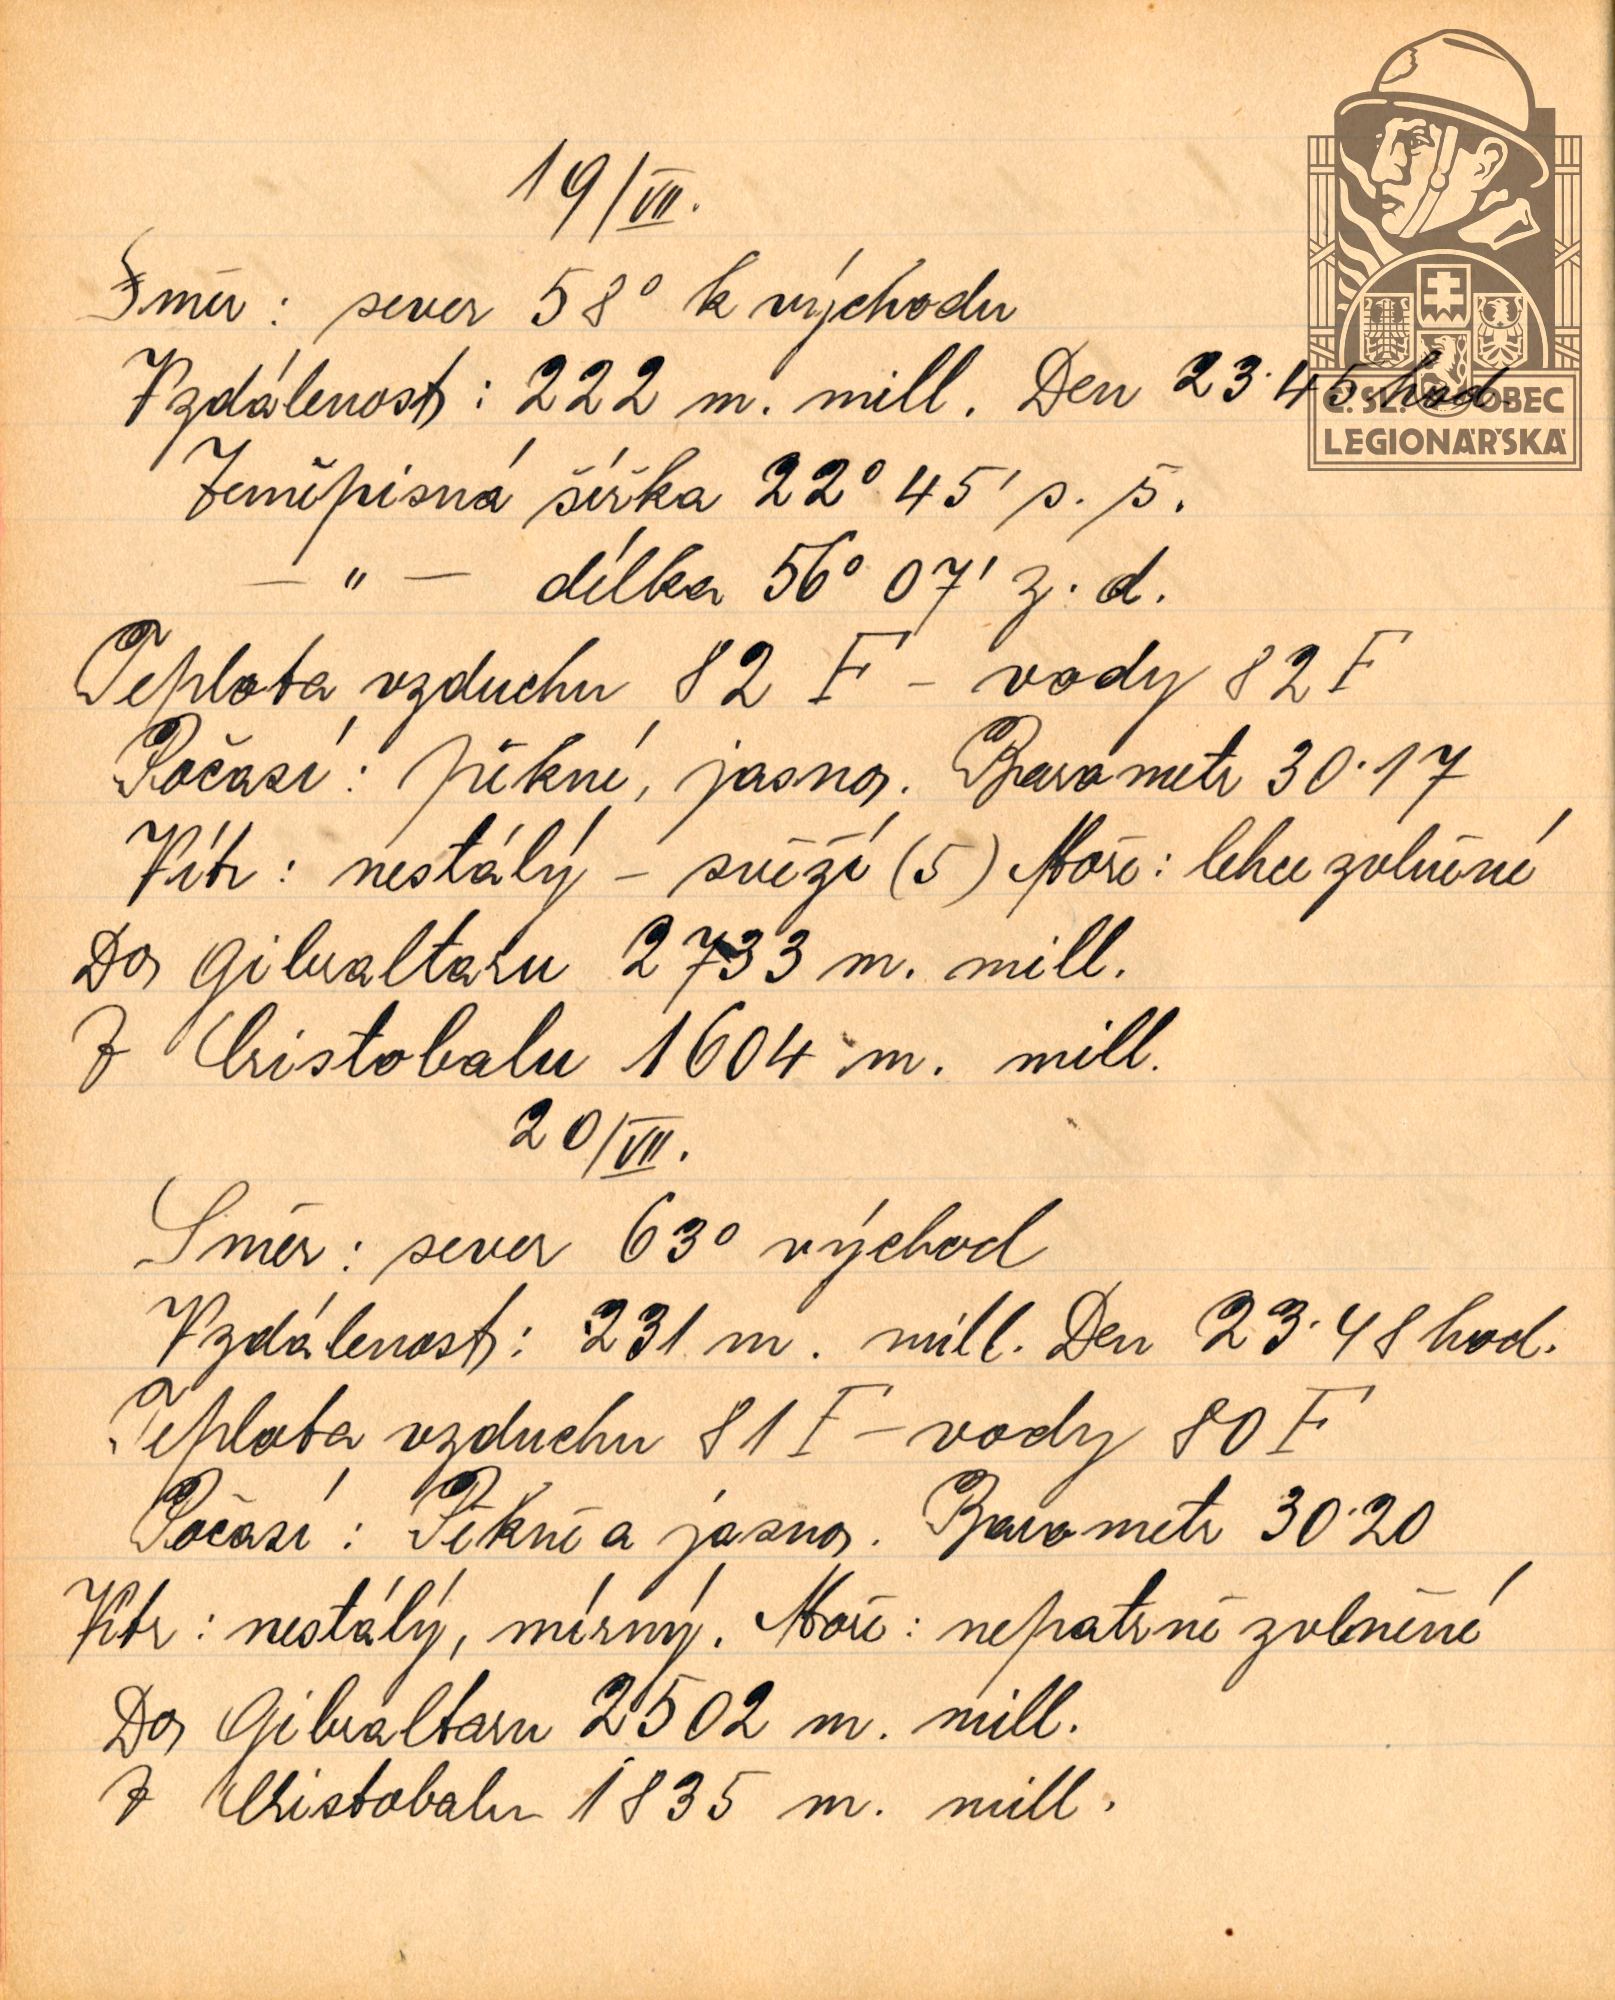 19/VII.
Směr: sever 58° k východu
Vzdálenost: 222 m. mill. Den 23·45 hod.
Č. SL. OBEC
LEGIONÁŘSKÁ
Zeměpisná šířka 22° 45' s. š.
— " — délka 56° 07' z. d.
Teplota vzduchu 82 F – vody 82 F
Počasí: pěkné, jasno. Barometr 30·17
Vítr: nestálý – svěží (5) Moře: lehce zvlněné
Do Gibraltaru 2733 m. mill.
Z Cristobalu 1604 m. mill.
20/VII.
Směr: sever 63° východ
Vzdálenost: 231 m. mill. Den 23·48 hod.
Teplota vzduchu 81 F – vody 80 F
Počasí: Pěkně a jasno. Barometr 30·20
Vítr: nestálý, mírný. Moře: nepatrně zvlněné
Do Gibraltaru 2502 m. mill.
Z Cristobalu 1835 m. mill.